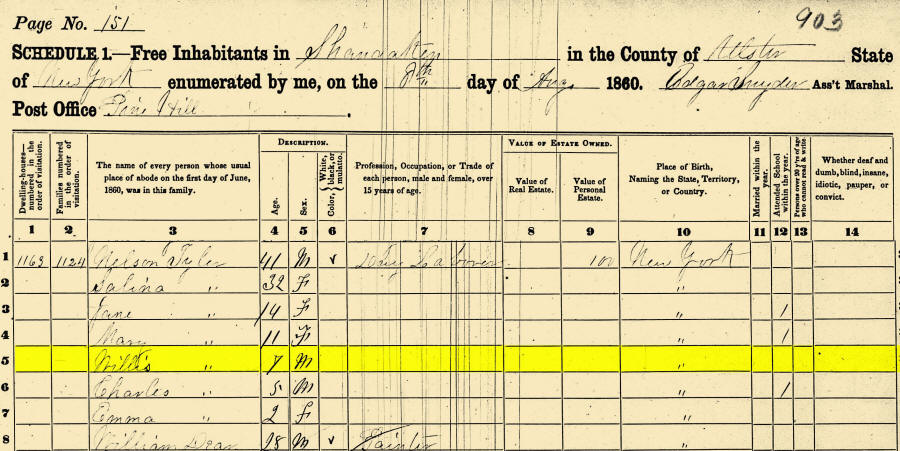 Page No. 151
903
SCHEDULE 1.—Free Inhabitants in Shandaken in the County of Ulster State
of New York enumerated by me, on the 8th day of Aug 1860. Edgar Snyder Ass't Marshal.
Post Office Pine Hill .
Dwelling-houses—numbered in the order of visitation.
Families numbered in the order of visitation.
The name of every person whose usual place of abode on the first day of June, 1860, was in this family.
DESCRIPTION.
Age.
Sex.
Color, { White, black, or mulatto.
Profession, Occupation, or Trade of each person, male and female, over 15 years of age.
VALUE OF ESTATE OWNED.
Value of Real Estate.
Value of Personal Estate.
Place of Birth, Naming the State, Territory, or Country.
Married within the year.
Attended School within the year.
Persons over 20 y'rs of age who cannot read & write
Whether deaf and dumb, blind, insane, idiotic, pauper, or convict.
1 2 3 4 5 6 7 8 9 10 11 12 13 14
1 1163 1124 Nelson Tyler 41 M Day Laborer 100 New York
2 Salina " 32 F "
3 Jane " 14 F " 1
4 Mary " 11 F " 1
5 Willis " 7 M "
6 Charles " 5 M " 1
7 Emma " 2 F "
8 William Dean 28 M Painter "